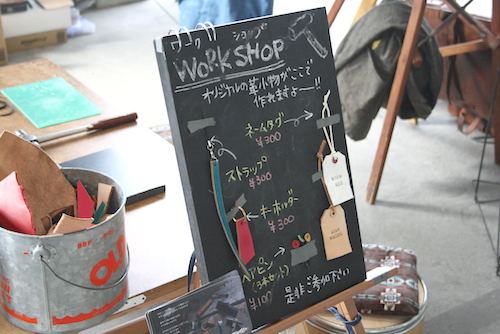 ワーク ショップ
WORK SHOP
オリジナルの革小物がここで
作れますよー!!
ネームタグ→
¥300
ストラップ
¥300
←キーホルダー
¥300
ヘアピン
(3本セット)
¥100
是非ご参加下さい
OLD